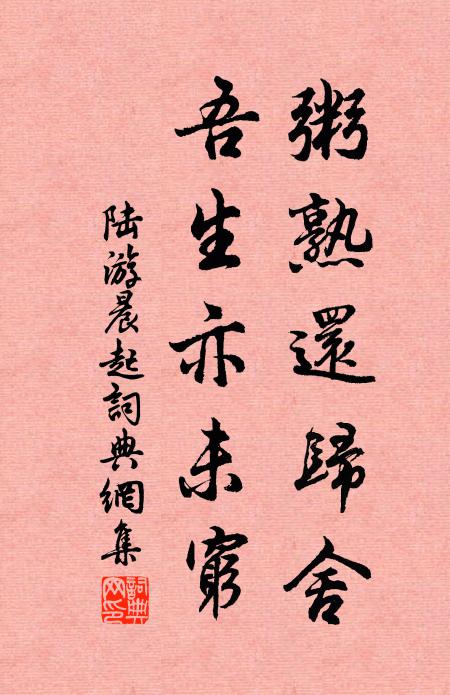 粥熟還歸舍
吾生亦未窮
陆游晨起詞典網集
詞典网印